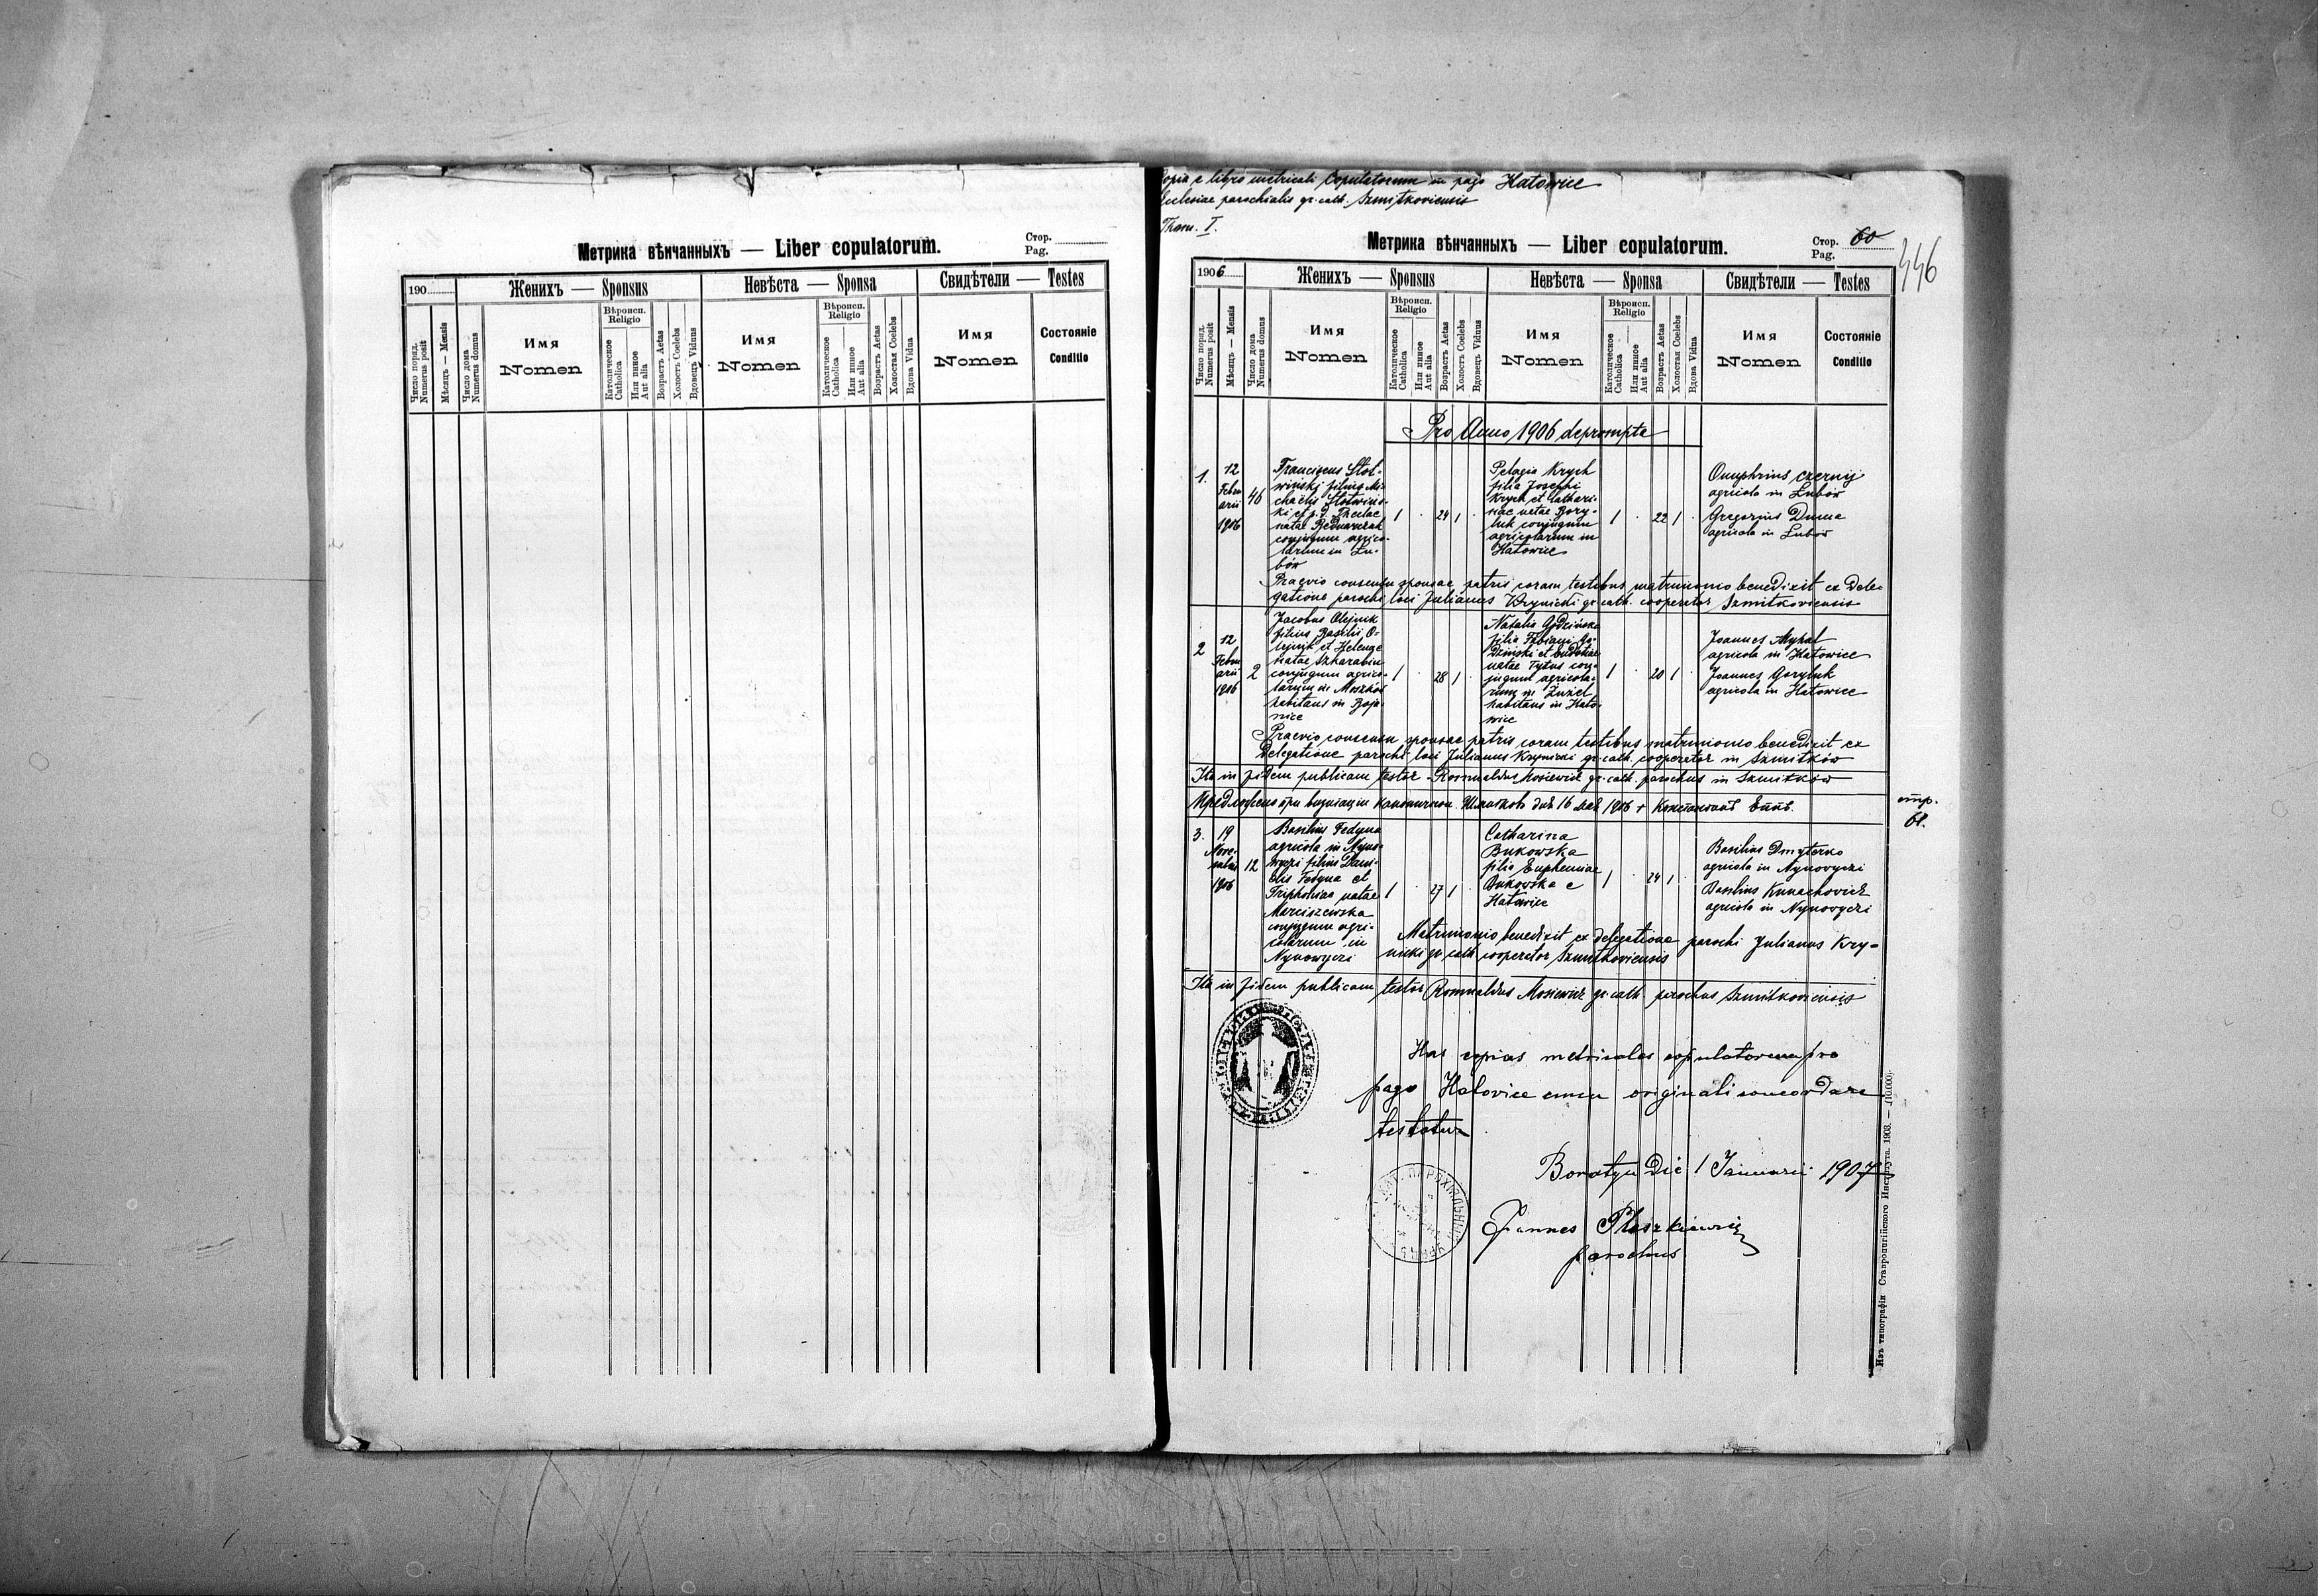 Метрика вѣнчанныхъ — Liber copulatorum.
Стор.
Pag.
190
Женихъ — Sponsus
Невѣста — Sponsa
Свидѣтели — Testes
Число поряд.
Numerus posit
Мѣсяцъ — Mensis
Число дома
Numerus domus
Имя
Nomen
Вѣроисп.
Religio
Католическое
Catholica
Или инное
Aut alia
Возрастъ Aetas
Холостъ Coelebs
Вдовець Viduus
Имя
Nomen
Вѣроисп.
Religio
Католическое
Catholica
Или инное
Aut alia
Возрастъ Aetas
Холостая Coelebs
Вдова Vidua
Имя
Nomen
Состояніе
Conditio
Copia e libro metricali Copulatorum in pago Hatowice
Ecclesiae parochialis gr. cath. Szmitkoviensis
Thom. I.
Метрика вѣнчанныхъ — Liber copulatorum.
Стор. 60
Pag.
446
1906
Женихъ — Sponsus
Невѣста — Sponsa
Свидѣтели — Testes
Число поряд.
Numerus posit
Мѣсяцъ — Mensis
Число дома
Numerus domus
Имя
Nomen
Вѣроисп.
Religio
Католическое
Catholica
Или инное
Aut alia
Возрастъ Aetas
Холостъ Coelebs
Вдовець Viduus
Имя
Nomen
Вѣроисп.
Religio
Католическое
Catholica
Или инное
Aut alia
Возрастъ Aetas
Холостая Coelebs
Вдова Vidua
Имя
Nomen
Состояніе
Conditio
Pro Anno 1906 deprompta
1.
12
Febru
arii
1906
46
Franciscus Słot-
wiński filius Mi-
chaelis Słotwińs-
ki et Theclae
natae Bednarczuk
conjugum agrico-
larum in Lu-
bów
1 . 24 1 .
Pelagia Krych
filia Josephi
Krych et Cathari-
nae natae Bory-
luk conjugum
agricolarum in
Hatowice
1 . 22 1 .
Onuphrius Czernij
agricola in Lubów
Gregorius Duma
agricola in Lubów
Praevio consensu sponsae patris coram testibus matrimonio benedixit ex dele-
gatione parochi loci Julianus Krynicki gr. cath. cooperator Szmitkoviensis
2
12
Febru
arii
1906
2
Jacobus Olejnik
filius Basilii O-
lejnik et Helenae
natae Szkarabin
conjugum agrico-
larum in Moszków
habitans in Boja-
nice
1 . 28 1
Natalia Godzińska
filia Fabiani Go-
dziński et Eudotiae
natae Tytus con-
jugum agricola-
rum in Żużel
habitans in Hato-
wice
1 . 20 1
Joannes Mykal
agricola in Hatowice
Joannes Goryluk
agricola in Hatowice
Praevio consensu sponsae patris coram testibus matrimonio benedixit ex
delegatione parochi loci Julianus Krynicki gr. cath. cooperator in Szmitków
Ita in fidem publicam testor Romualdus Mosiewicz gr. cath. parochus in Szmitków
Предложено при визитаціи каноничной. Шмитковъ дня 16 мая 1906 + Константинъ Еппъ.
стр.
61.
3.
19
Nove-
mbris
1906
12
Basilius Fedyna
agricola in Nyno-
wyczi filius Dani-
elis Fedyna et
natae
Marciszewska
conjugum agri-
colarum in
Nynowyczi
1 . 27 1 .
Catharina
Bukowska
filia Eupheniae
Bukowska e
Hatowice
1 . 24 1 .
Basilius Dmyterko
agricola in Nynovyczi
Basilius Kunachovicz
agricola in Nynovyczi
Matrimonio benedixit ex delegatione parochi Julianus Kry-
nicki gr. cath. cooperator Szmitkoviensis
Ita in fidem publicam testor Romualdus Mosiewicz gr. cath. parochus Szmitkoviensis
Has copias metricales copulatorum pro
pago Hatovice cum originali concordare
testatur
Boratyn die 1 Januarii 1907
Joannes Płeszkiewicz
parochus
Изъ типографіи Ставропигійского Института. 1908. — (10.000).